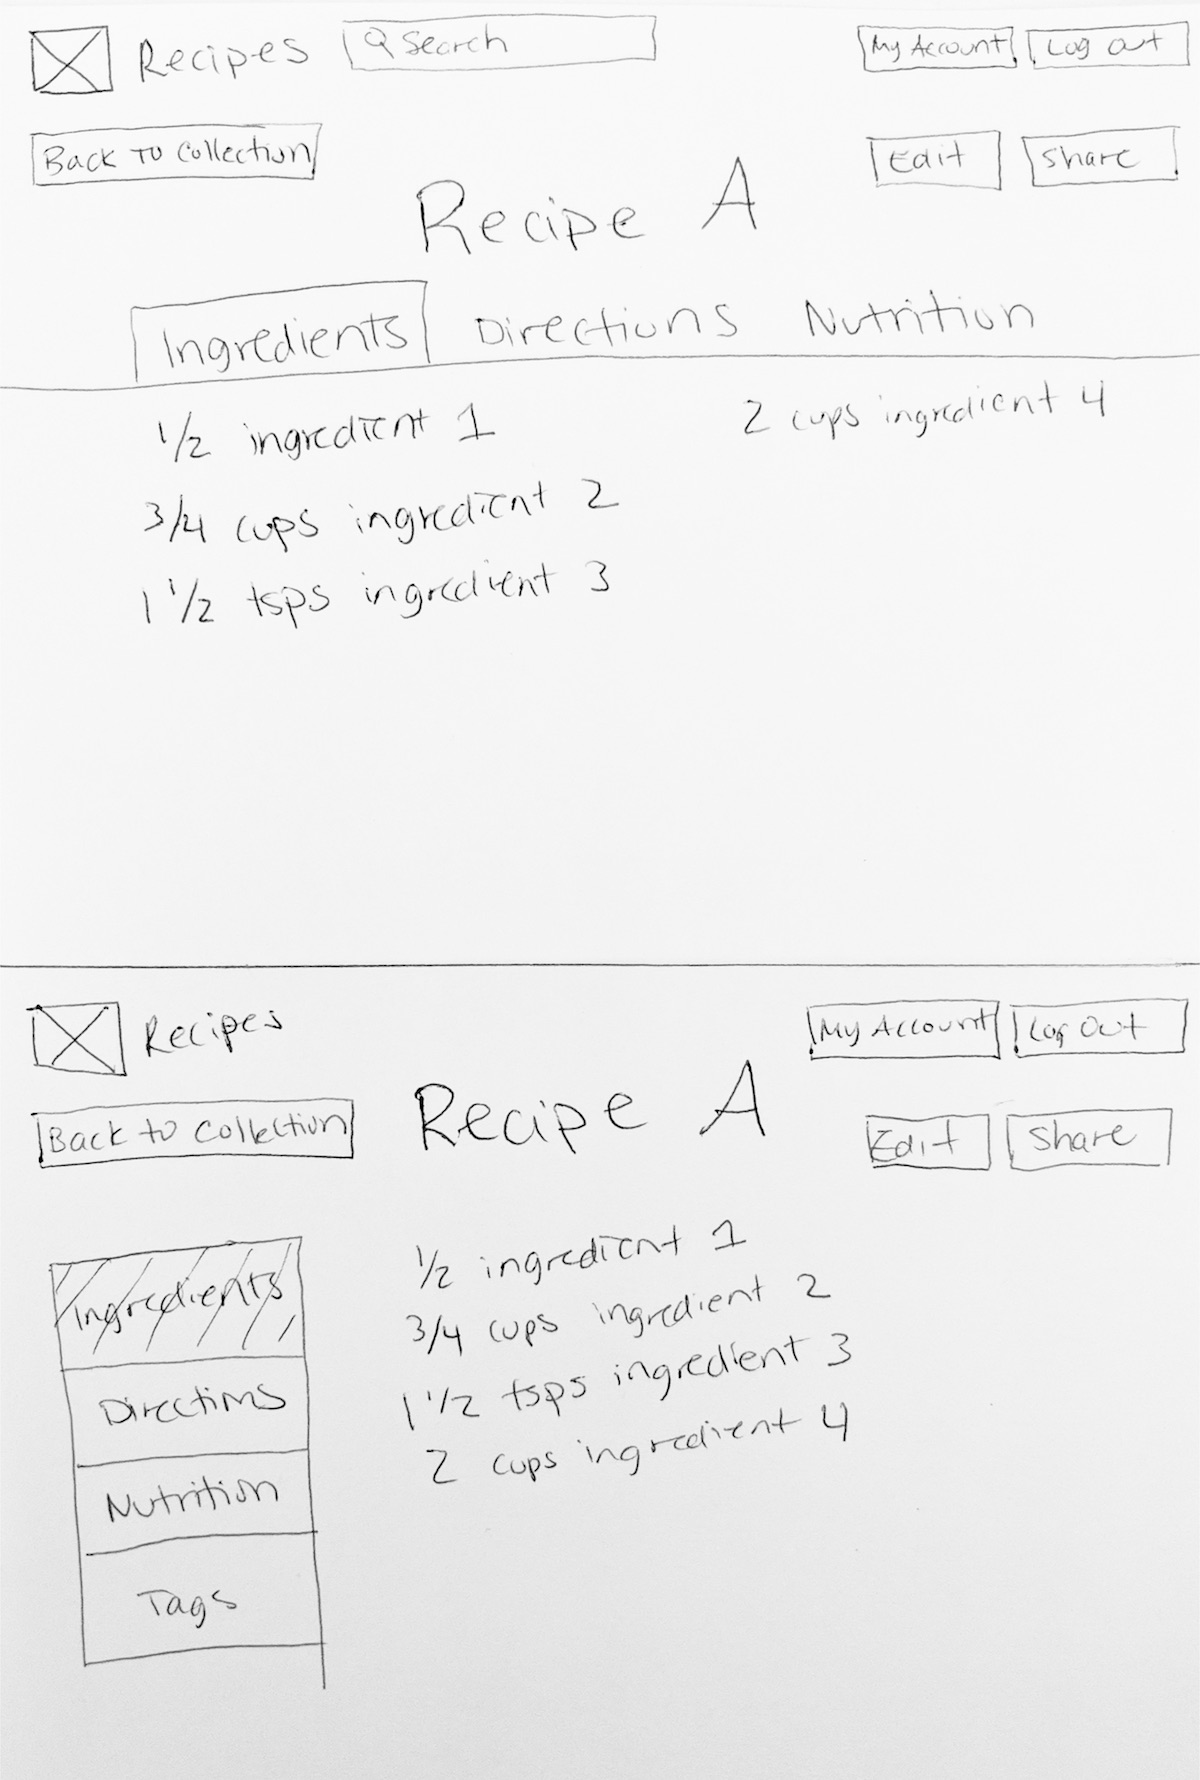 Recipes Search My Account Log out
Back To Collection Edit Share
Recipe A
Ingredients Directions Nutrition
1/2 ingredient 1 2 cups ingredient 4
3/4 cups ingredient 2
1 1/2 tsps ingredient 3
Recipes My Account Log Out
Back to Collection Recipe A Edit Share
Ingredients
Directions
Nutrition
Tags
1/2 ingredient 1
3/4 cups ingredient 2
1 1/2 tsps ingredient 3
2 cups ingredient 4